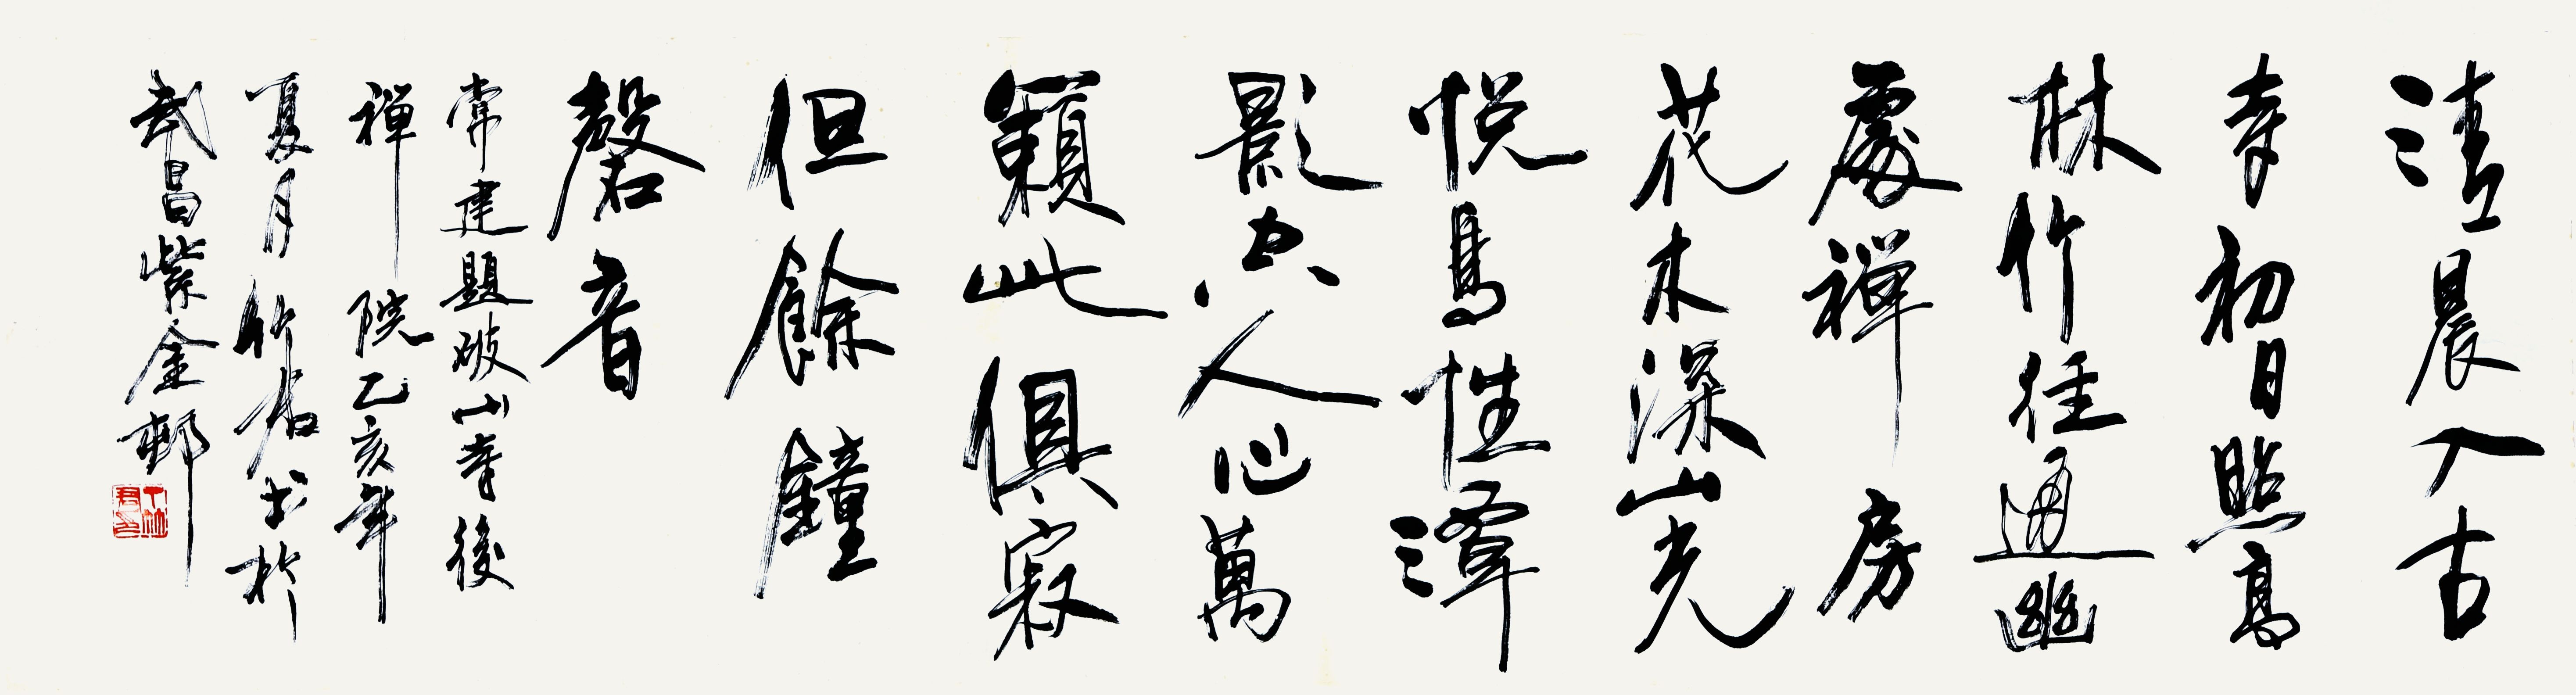 清晨入古
寺初日照高
林竹径通幽
處禅房
花木深山光
悦鳥性潭
影空人心萬
籟此俱寂
但餘鐘
磬音
常建題破山寺後
禅院乙亥年
夏月竹君书於
武昌紫金邨
丁竹君印